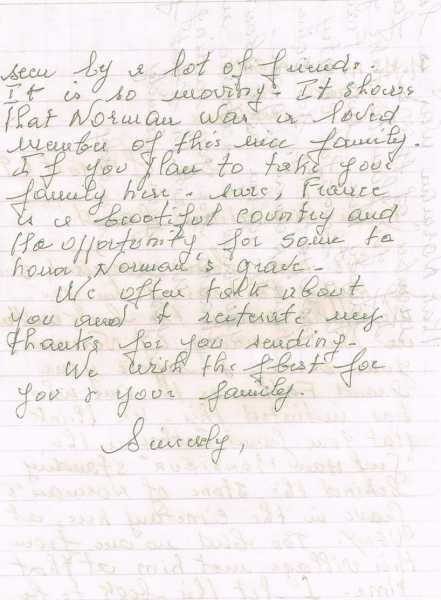 seen by a lot of friends.
It is so moving. It shows
that Norman was a loved
member of this nice family.
If you plan to take your
family here. sure, France
is a beautiful country and
the opportunity for some to
honor Norman's grave.
We often talk about
you and I reiterate my
thanks for you sending.
We wish the best for
you & your family.
Sincerely,